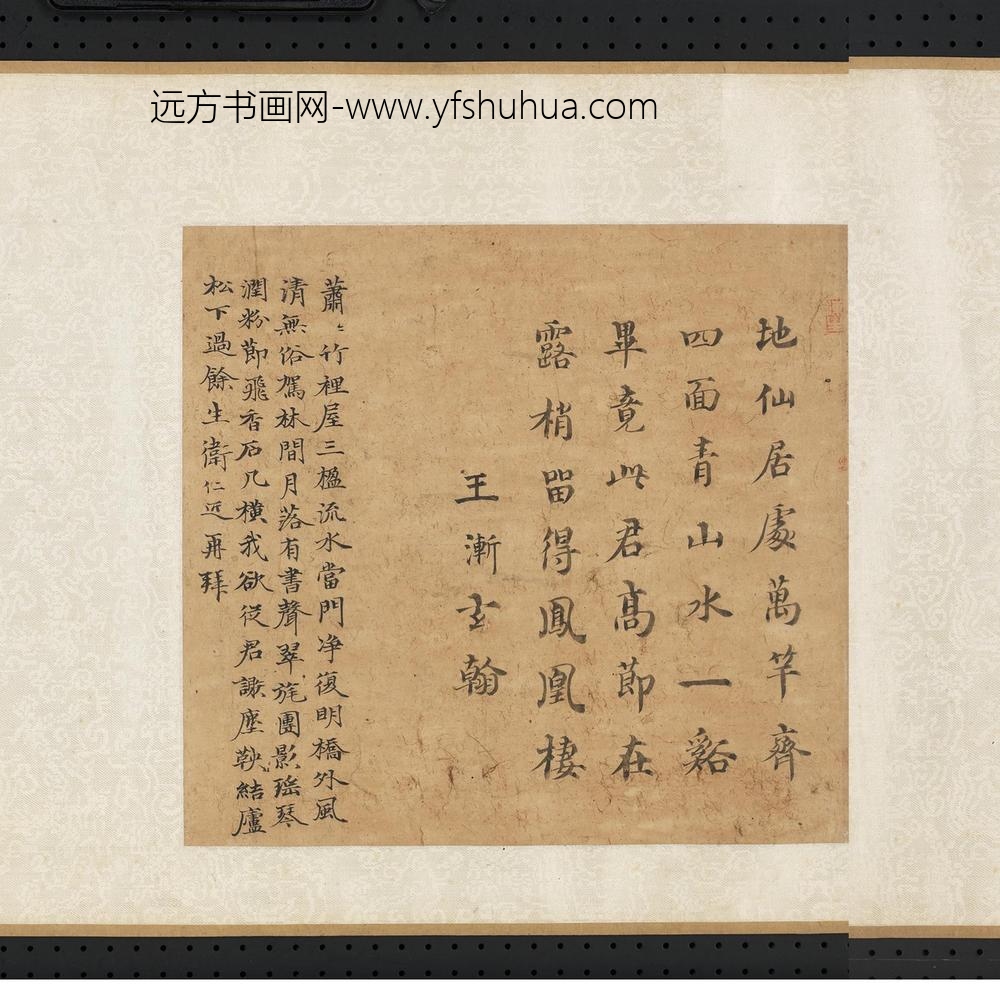 远方书画网-www.yfshuhua.com
地仙居處萬竿齊
四面青山水一谿
畢竟此君高節在
露梢留得鳳凰棲
王漸玄翰
蕭〻竹裡屋三楹流水當門净復明橋外風
清無俗駕林間月落有書聲翠旄團影瑶琴
潤粉節飛香石几横我欲從君謝塵鞅結廬
松下過餘生衛仁近再拜